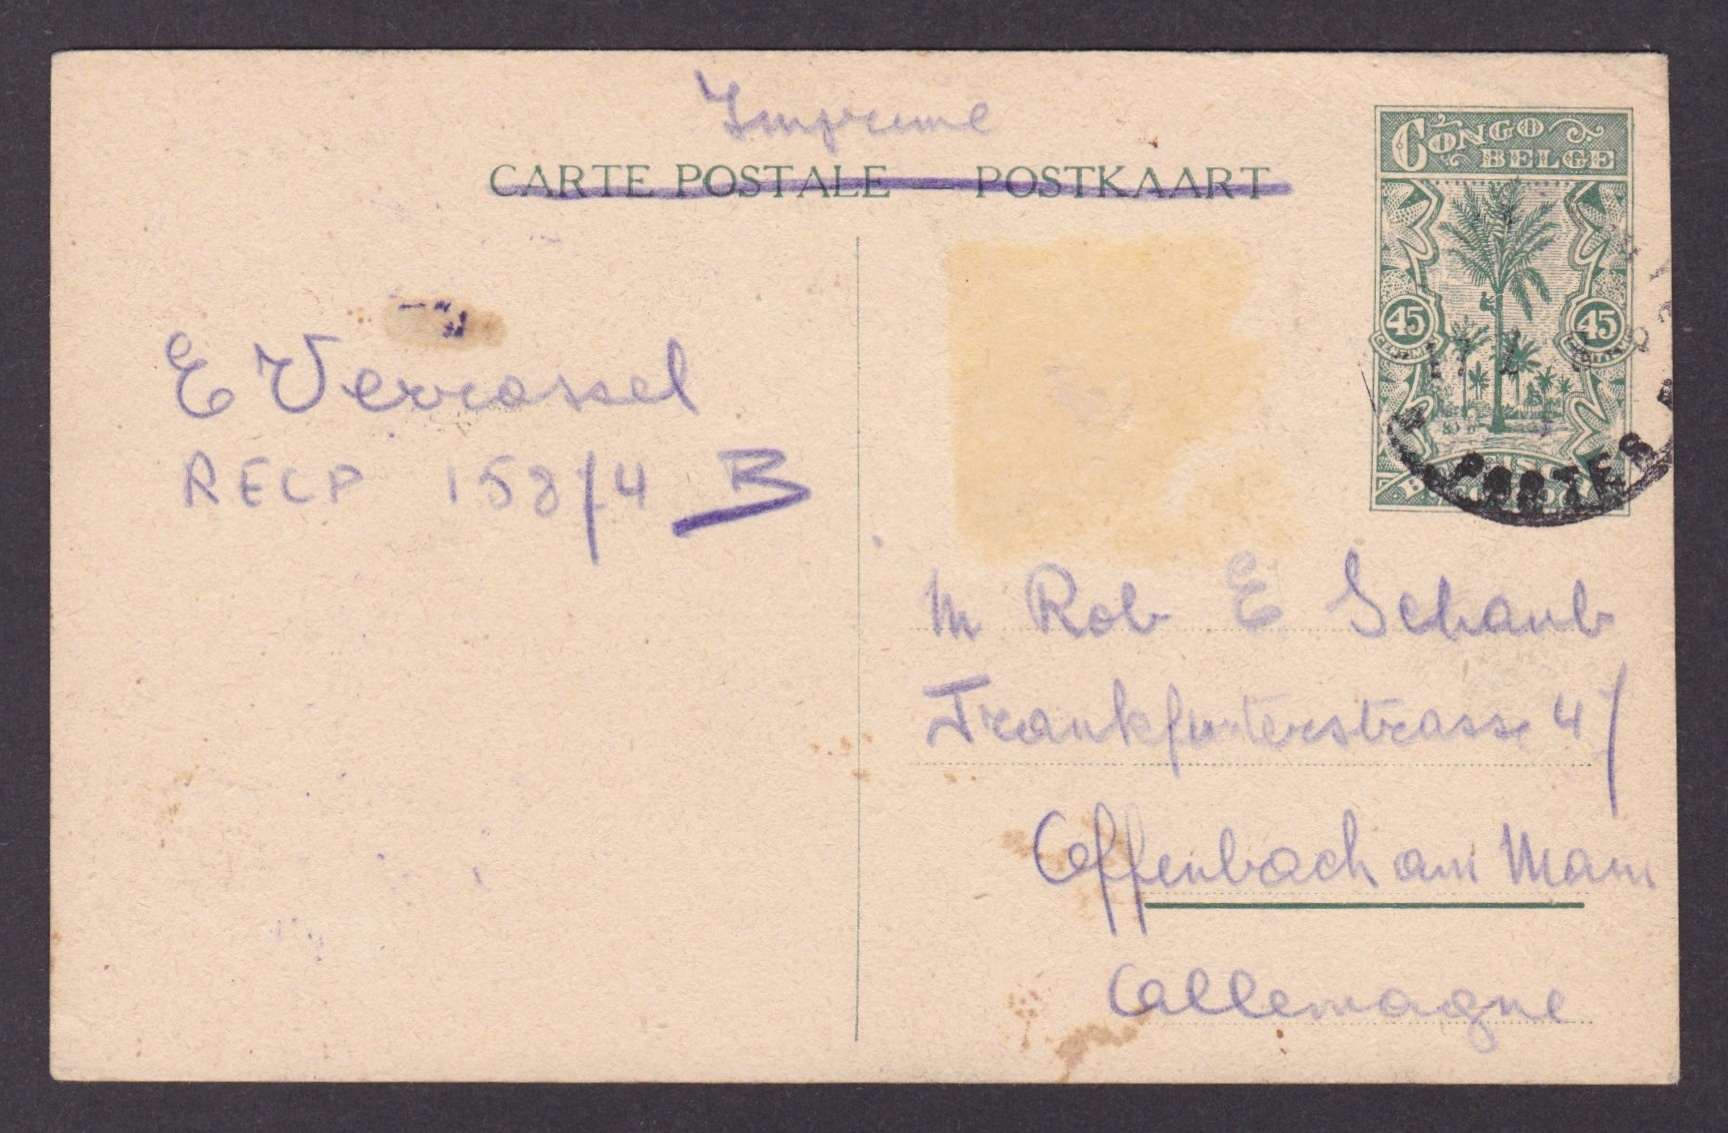 Imprimé
CARTE POSTALE — POSTKAART
CONGO
BELGE
45 45
POSTES
E Verrassel
RECP 158/4 B
M Rob E Schaub
Frankfurterstrasse 4/
Offenbach am Main
Allemagne